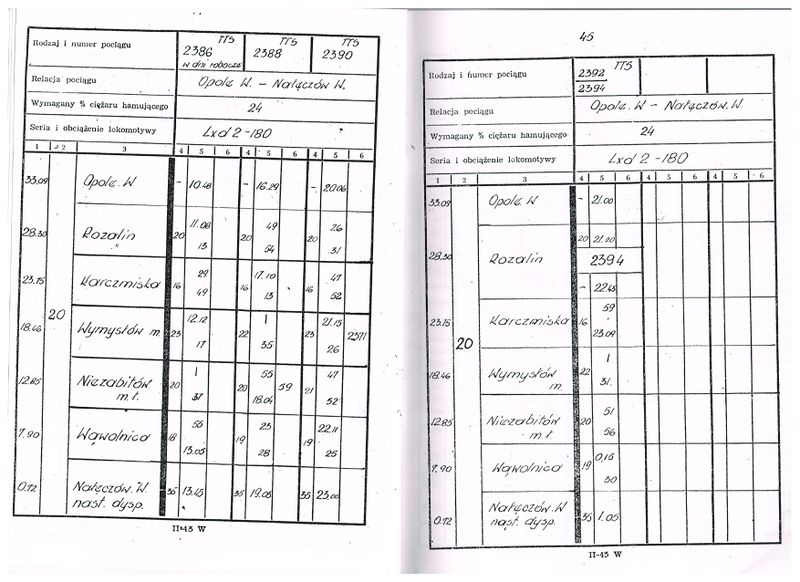 Rodzaj i numer pociągu TTS 2386 w dni robocze TTS 2388 TTS 2390
Relacja pociągu Opole W. – Nałęczów W.
Wymagany % ciężaru hamującego 24
Seria i obciążenie lokomotywy Lxd2-180
1 2 3 4 5 6 4 5 6 4 5 6
33.09 Opole W – 10.48 – 16.29 – 20.06
11.08 49 26
28.30 Rozalin 20 20 20
13 54 31
29 17.10 47
23.75 Karczmiska 16 16 16
49 13 52
20
12.12 | 21.15
18.46 Wymysłów m. 23 22 23 2371
17 35 26
| 55 47
12.85 Niezabitów m.t. 20 20 59 21
31 18.04 52
55 23 22.11
7.90 Wąwolnica 18 19 19
13.05 28 25
0.72 Nałęczów W. nast. dysp. 35 13.45 35 19.05 35 23.00
II-45 W
45
Rodzaj i numer pociągu 2392 TTS
2394
Relacja pociągu Opole W – Nałęczów W.
Wymagany % ciężaru hamującego 24
Seria i obciążenie lokomotywy Lxd2-180
1 2 3 4 5 6 4 5 6 4 5 6
33.09 Opole W – 21.00
20 21.20
28.30 Rozalin 2394
– 22.43
59
23.75 Karczmiska 16
23.09
20
|
18.46 Wymysłów m. 22
31.
51
12.85 Niezabitów m.t. 20
56
0.15
7.90 Wąwolnica 19
30
0.72 Nałęczów W nast. dysp. 35 1.05
II-45 W